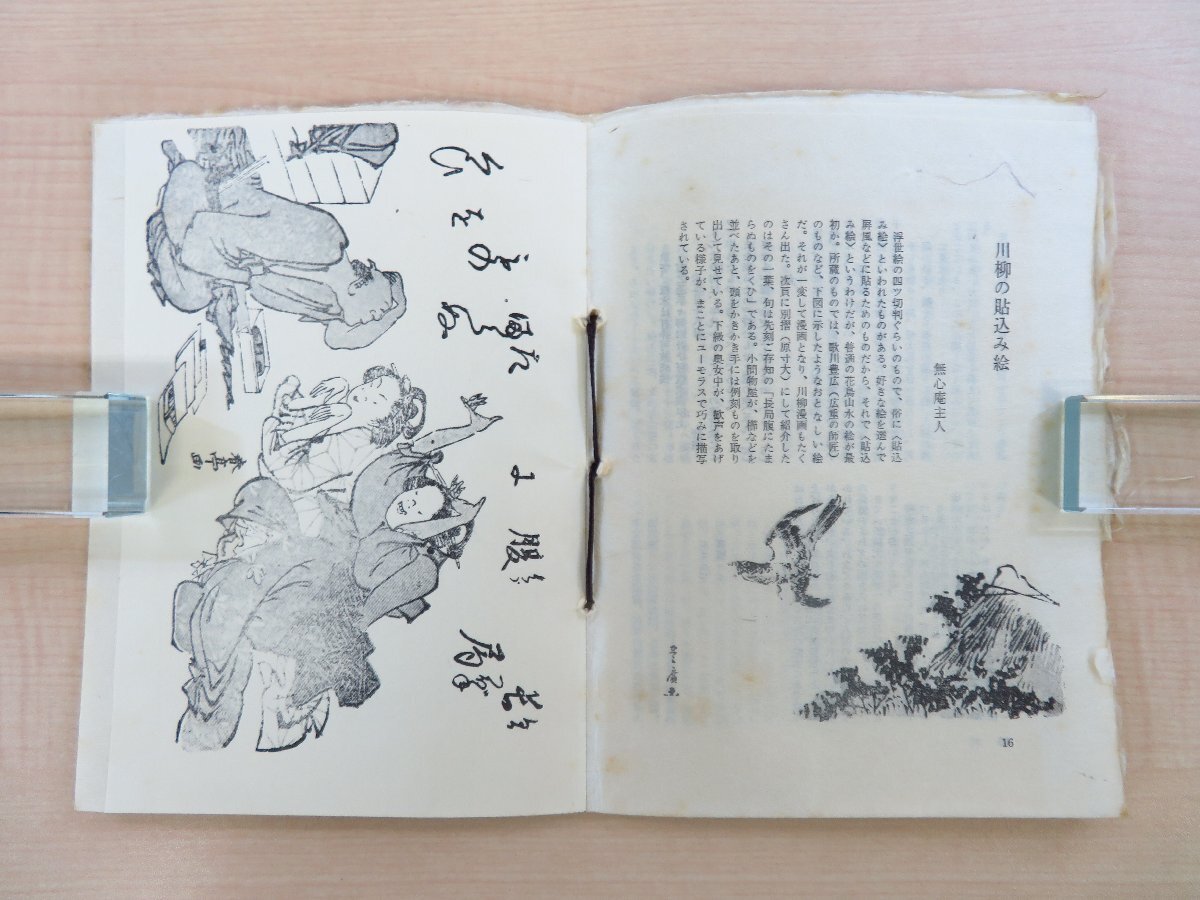 川柳の貼込み絵
無心庵主人
浮世絵の四ツ切判ぐらいのもので、俗に〈貼込
み絵〉といわれたものがある。好きな絵を選んで
屏風などに貼るためのものだから、それで〈貼込
み絵〉というわけだが、普通の花鳥山水の絵が最
初か。所蔵のものでは、歌川豊広（広重の師匠）
のものなど、下図に示したようなおとなしい絵
だ。それが一変して漫画となり、川柳漫画もたく
さん出た。次頁に別摺（原寸大）にして紹介した
のはその一葉、句は先刻ご存知の「長局腹にたま
らぬものをくひ」である。小間物屋が、櫛などを
並べたあと、頭をかきかき手には例刻ものを取り
出して見せている。下級の奥女中が、歓声をあげ
ている様子が、まことにユーモラスで巧みに描写
されている。
豊廣画
16
長
局
腹
春亭画